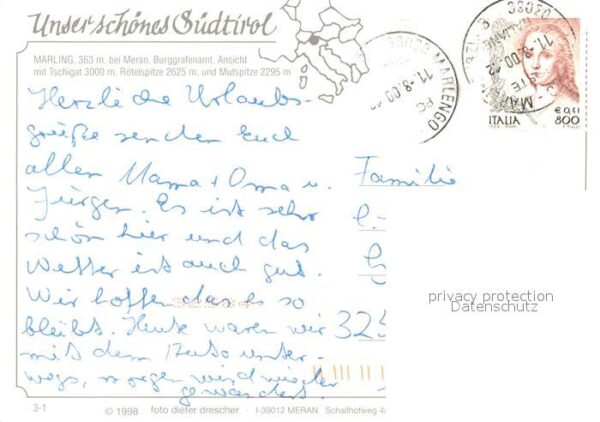 Unser schönes Südtirol
MARLING, 363 m. bei Meran. Burggrafenamt. Ansicht
mit Tschigat 3000 m, Rötelspitze 2625 m, und Mutspitze 2295 m
Herzliche Urlaubs-
grüße senden Euch
allen Mama + Oma u.
Jürgen. Es ist sehr
schön hier und das
Wetter ist auch gut.
Wir hoffen das es so
bleibt. Heute waren wir
mit dem Auto unter-
wegs, morgen wird wieder
gewandert.
39020 MARLENGO
11-8.00
ITALIA
€ 0,41
800
Familie
325
privacy protection
Datenschutz
3-1
© 1998 foto dieter drescher I-39012 MERAN Schallhofweg